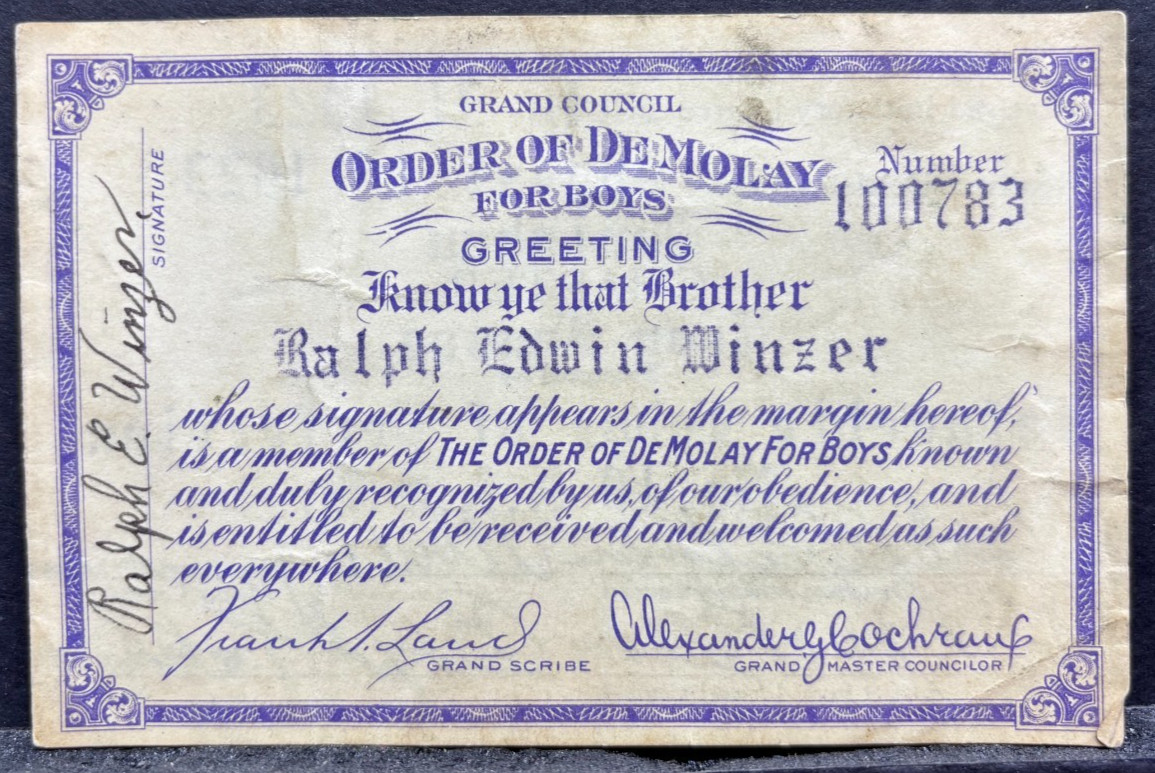 GRAND COUNCIL
ORDER OF DEMOLAY
FOR BOYS
Number
100783
GREETING
Know ye that Brother
Ralph Edwin Winzer
whose signature appears in the margin hereof,
is a member of THE ORDER OF DEMOLAY FOR BOYS, known
and duly recognized by us, of our obedience, and
is entitled to be received and welcomed as such
everywhere.
Frank S. Land
GRAND SCRIBE
Alexander G Cochran
GRAND MASTER COUNCILOR
Ralph E. Winzer
SIGNATURE